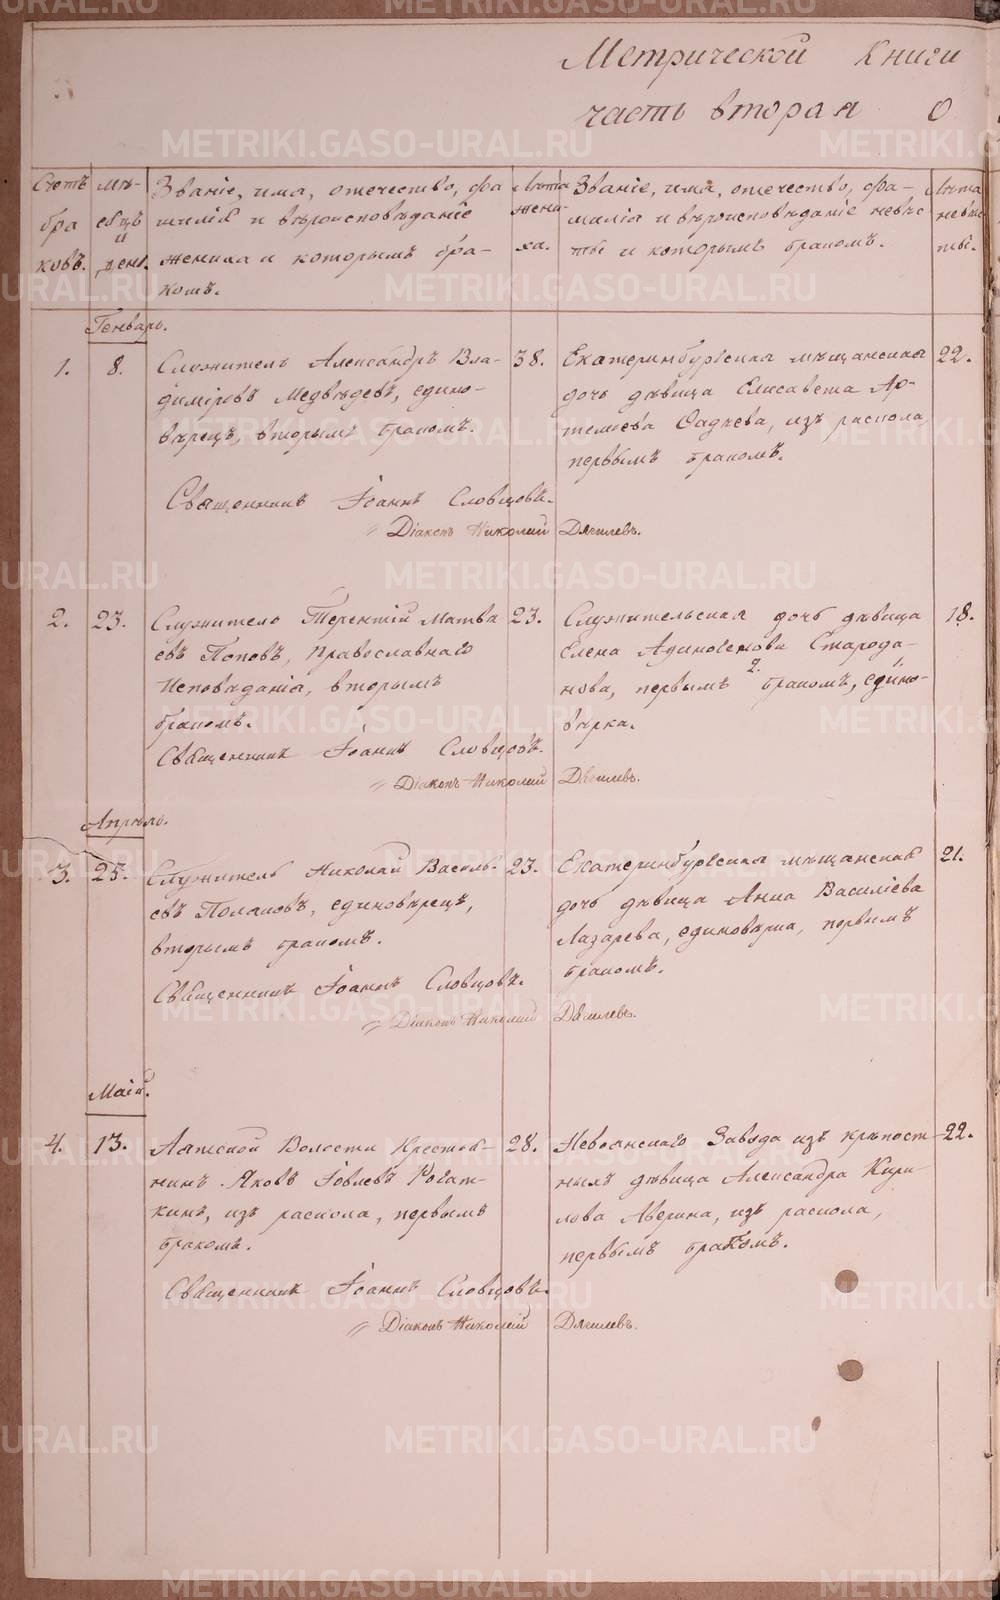 Метрической Книги
часть вторая О
Счетъ браковъ.
Мѣсяцъ и день.
Званіе, имя, отечество, фамилія и вѣроисповѣданіе
жениха и которымъ бракомъ.
Лѣта жениха.
Званіе, имя, отечество, фамилія и вѣроисповѣданіе невѣсты и которымъ бракомъ.
Лѣта невѣсты.
Генварь.
1. 8.
Служитель Александръ Вла-
диміровъ Медвѣдевъ, едино-
вѣрецъ, вторымъ бракомъ.
38.
Екатеринбургская мѣщанская
дочь дѣвица Елисавета Ар-
темьева Фадѣева, изъ раскола,
первымъ бракомъ.
22.
Священникъ Іоаннъ Словцовъ.
Діаконъ Николай Дягилевъ.
2. 23.
Служитель Терентій Матвѣ
евъ Поповъ, Православнаго
Исповѣданія, вторымъ
бракомъ.
23.
Служительская дочь дѣвица
Елена Старода-
нова, первымъ бракомъ, едино-
вѣрка.
18.
Священникъ Іоаннъ Словцовъ.
Діаконъ Николай Дягилевъ.
Апрѣль.
3. 25.
Служитель Николай Василь-
евъ Полаповъ, единовѣрецъ,
вторымъ бракомъ.
23.
Екатеринбургская мѣщанская
дочь дѣвица Анна Василіева
Лазарева, единовѣрка, первымъ
бракомъ.
21.
Священникъ Іоаннъ Словцовъ.
Діаконъ Николай Дягилевъ.
Маій.
4. 13.
Аятской Волости Крестья-
нинъ Яковъ Іовлевъ Рогат-
кинъ, изъ раскола, первымъ
бракомъ.
28.
Невьянскаго Завода изъ крѣпост-
ныхъ дѣвица Александра Кири-
лова Аверина, изъ раскола,
первымъ бракомъ.
22.
Священникъ Іоаннъ Словцовъ.
Діаконъ Николай Дягилевъ.
METRIKI.GASO-URAL.RU